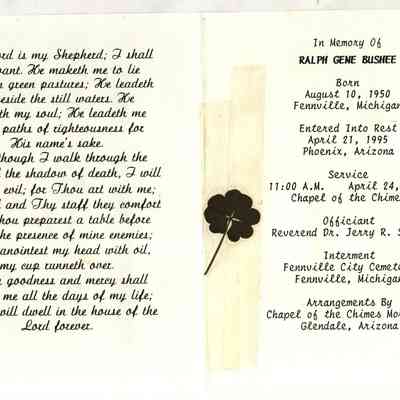 ord is my Shepherd; I shall
vant. He maketh me to lie
green pastures; He leadeth
eside the still waters. He
th my soul; He leadeth me
paths of righteousness for
His name's sake.
though I walk through the
the shadow of death, I will
evil; for Thou art with me;
and Thy staff they comfort
hou preparest a table before
he presence of mine enemies;
anointest my head with oil,
my cup runneth over.
goodness and mercy shall
me all the days of my life;
will dwell in the house of the
Lord forever.
In Memory Of
RALPH GENE BUSHEE
Born
August 10, 1950
Fennville, Michigan
Entered Into Rest
April 21, 1995
Phoenix, Arizona
Service
11:00 A.M. April 24,
Chapel of the Chimes
Officiant
Reverend Dr. Jerry R. S
Interment
Fennville City Cemet
Fennville, Michigan
Arrangements By
Chapel of the Chimes Mo
Glendale, Arizona